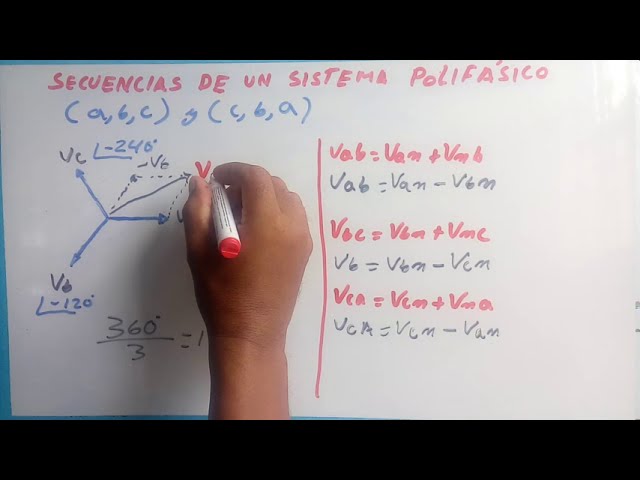 SECUENCIAS DE UN SISTEMA POLIFÁSICO
(a,b,c) y (c,b,a)
Vc ∠-240°
-Vb
V
Vb
∠-120°
360°/3 = 1
Vab = Van + Vnb
Vab = Van - Vbn
Vbc = Vbn + Vnc
Vb = Vbn - Vcn
VcA = Vcn + Vna
VcA = Vcn - Van